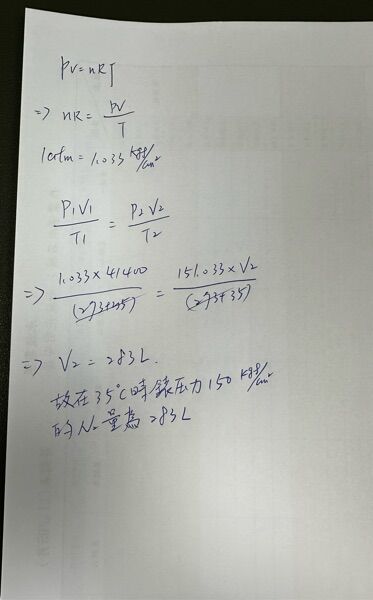 PV=nRT
=> nR = PV/T
1atm = 1.033 kgf/cm²
P1V1/T1 = P2V2/T2
=> 1.033×41400/(273+35) = 151.033×V2/(273+35)
=> V2 = 283L.
故在35°C時錶压力150 kgf/cm²
的N₂量為283L